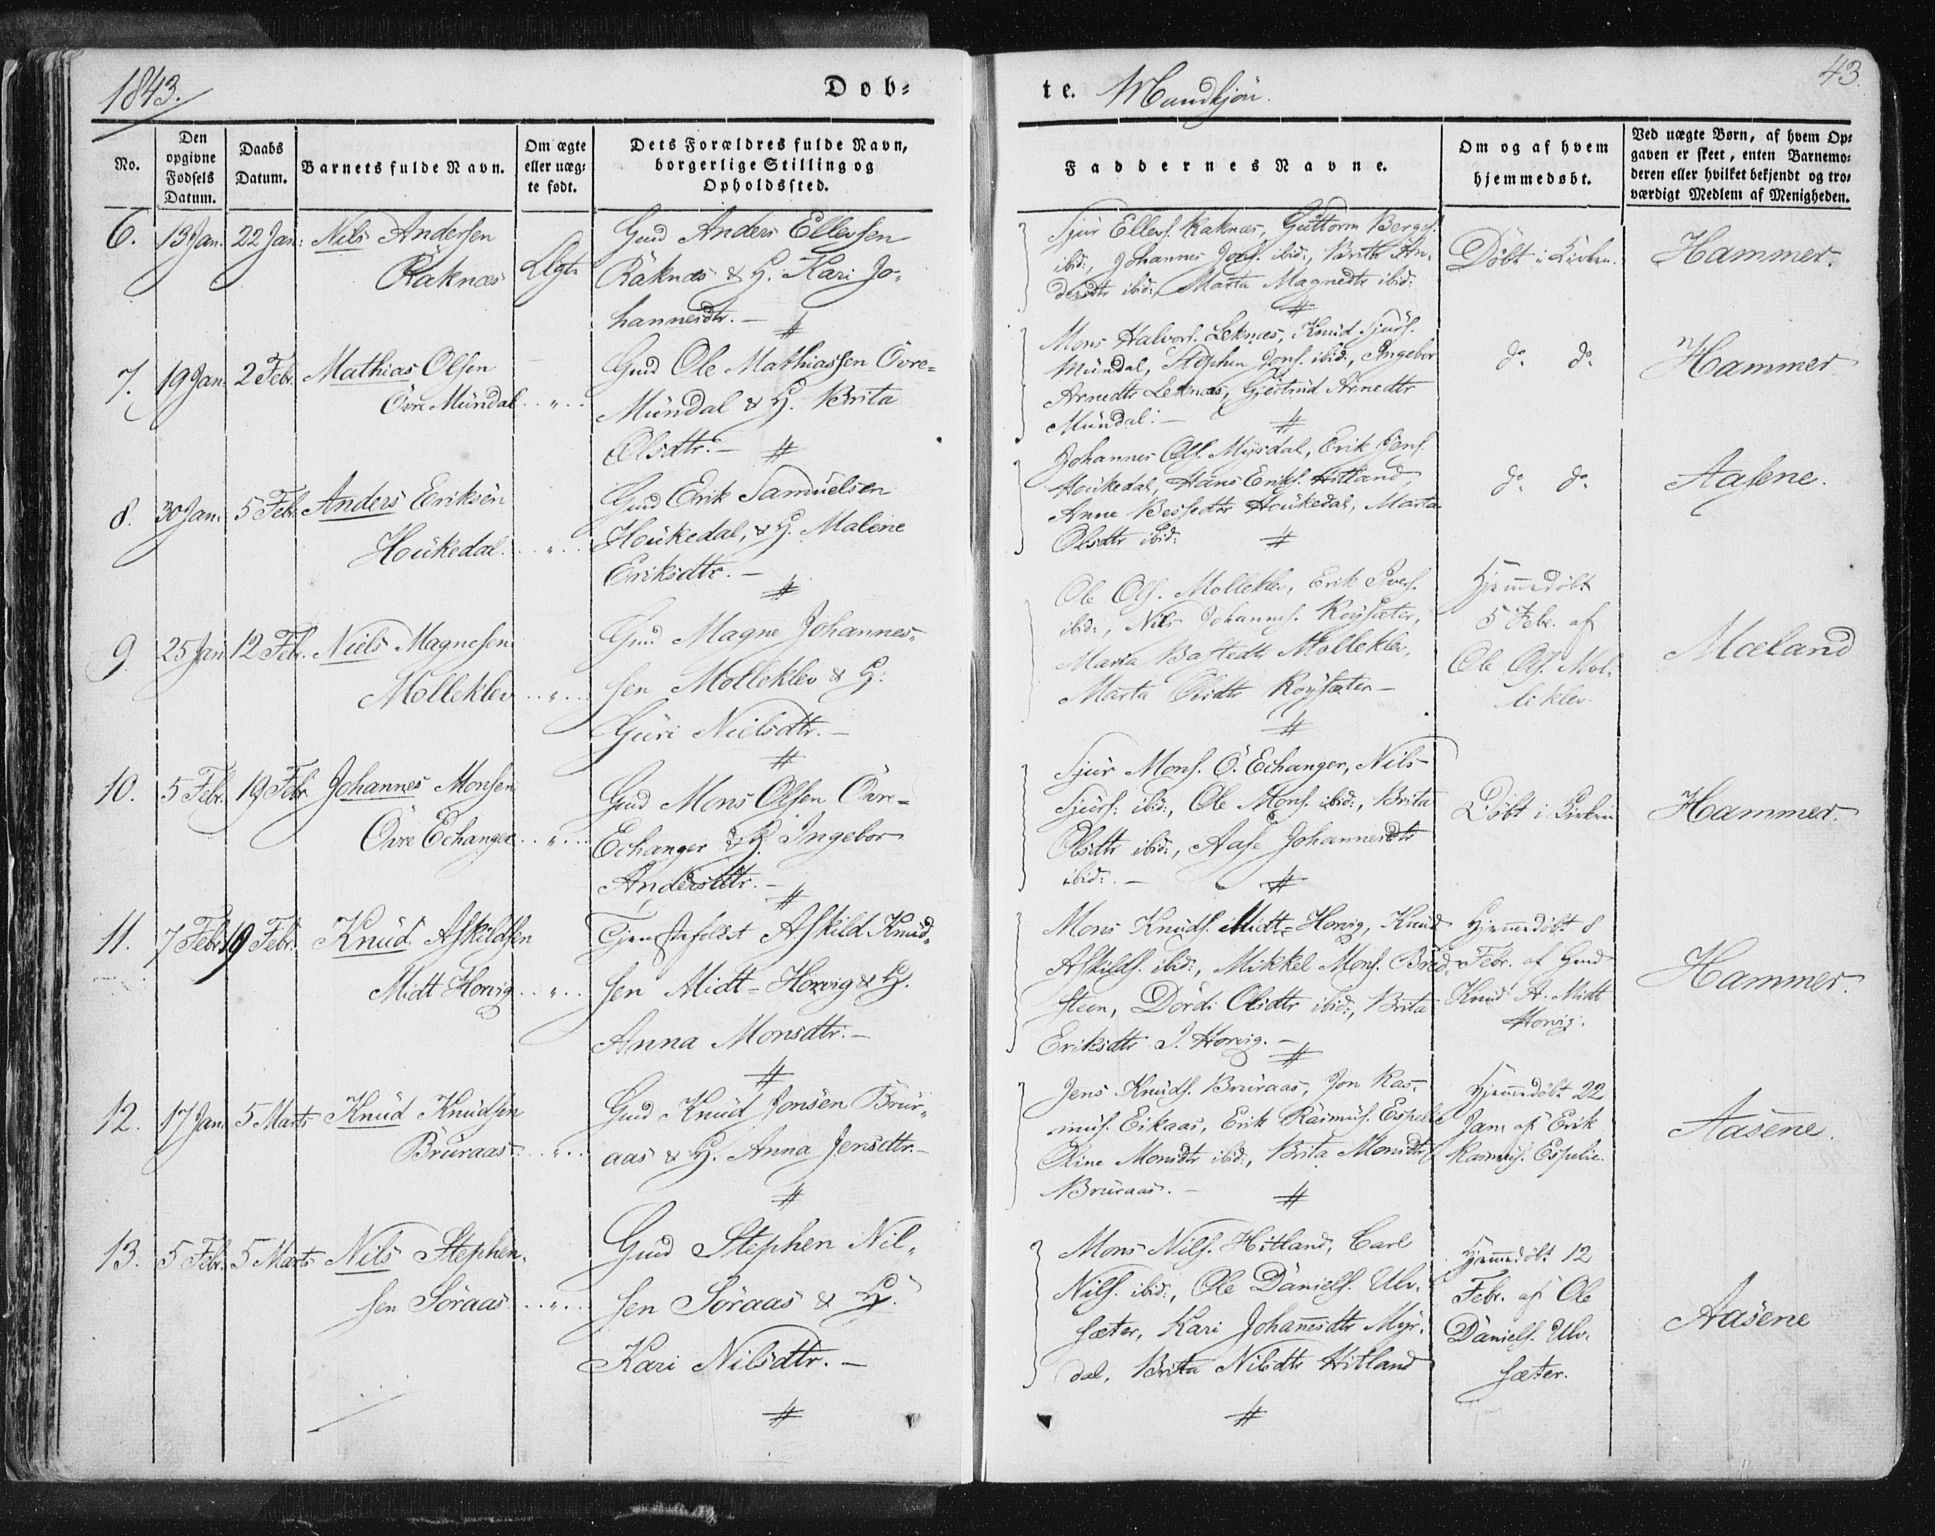 1843.
Døb-
te. Mandkjøn.
43.
No.
Den opgivne Fødsels Datum.
Daabs Datum.
Barnets fulde Navn.
Om ægte eller uægte født.
Dets Forældres fulde Navn, borgerlige Stilling og Opholdssted.
Faddernes Navne.
Om og af hvem hjemmedøbt.
Ved uægte Børn, af hvem Op-
gaven er skeet, enten Barnemo-
deren eller hvilket bekjendt og tro-
værdigt Medlem af Menigheden.
6. 13 Jan. 22 Jan: Nils Andersen
Raknæs
Ægte
Gmd Anders Ellevsen
Raknæs & H. Kari Jo-
hannesdtr. —
Sjur Ellevs. Raknæs, Guttorm Bergs.
ibid:, Johannes Johs. ibid:, Brita An-
dersdtr ibid:, Marta Magnedtr ibid:
Døbt i Kirken.
Hammer.
7. 19 Jan. 2 Febr. Mathias Olsen
Övre Mündal . . „ . .
Gmd Ole Mathiassen Övre-
Mündal & H. Brita
Olsdtr. —
Mons Halvors. Leknæs, Knud Sjurs.
Mündal, Stephen Jons. ibid:, Ingebor
Arnedtr Leknæs, Gjertrud Arnedtr
Mündal. —
do. do.
Hammer.
8. 30 Jan. 5 Febr. Anders Eriksen
Houkedal . . „ . .
Gmd Erik Samuelsen
Houkedal, & H. Malene
Eriksdtr. —
Johannes Ols. Myrdal, Erik Jons.
Houkedal, Hans Eriks. Hitland,
Anne Bessedtr Houkedal, Marta
Olsdtr ibid:
do. do.
Aasene.
9. 25 Jan 12 Febr. Niels Magnesen
Molleklev . . „ . .
Gmd Magne Johannes-
sen Molleklev & H.
Guri Nielsdtr. —
Ole Ols. Molleklev, Erik Ivers.
ibid:, Nils Johannes. Roysæter,
Maria Bastedtr Molleklev,
Marta Olsdtr Roysæter —
Hjemmedøbt
5 Febr. af
Ole Ols. Mol-
leklev.
Mæland
10. 5 Febr. 19 Febr Johannes Monsen
Övre Echanger . . „ . .
Gmd Mons Olsen Övre-
Echanger & H. Ingebor
Andersdtr. —
Sjur Mons. Ö. Echanger, Nils
Sjurs. ibid:, Ole Mons. ibid:, Brita
Olsdtr ibid:, Aase Johannesdtr
ibid: —
Døbt i Kirken
Hammer.
11. 7 Febr 19 Febr. Knud Askildsen
Midt Horvig . . „ . .
Gjenstafolkt Askild Knud-
sen Midt-Horvig & H.
Anna Monsdtr. —
Mons Knuds. Midt-Horvig, Knud
Askilds. ibid:, Mikkel Mons. Bred-
steen, Dördi Olsdtr ibid:, Brita
Eriksdtr I. Horvig. —
Hjemmedøbt 8
Febr. af Gmd
Knud A. Midt
Horvig.
Hammer.
12. 17 Jan. 5 Marts Knud Knudsen
Bruraas . . „ . .
Gmd Knud Jonsen Brur-
aas & H. Anna Jensdtr. —
Jens Knuds. Bruraas, Jon Ras-
mus. Eikaas, Erik Rasmus. Espelie
Oline Monsdtr ibid:, Brita Monsdtr
Bruraas. —
Hjemmedøbt 22
Jan. af Erik
Rasmus. Espelie.
Aasene.
13. 5 Febr. 5 Marts Nils Stephen-
sen Søraas . . „ . .
Gmd Stephen Nil-
sen Søraas & H.
Kari Nilsdtr. —
Mons Nils. Hitland, Carl
Nils. ibid:, Ole Daniels. Ulv-
sæter, Kari Johannesdtr Myr-
dal, Brita Nilsdtr Hitland
Hjemmedøbt 12
Febr. af Ole
Daniels. Ulv-
sæter.
Aasene